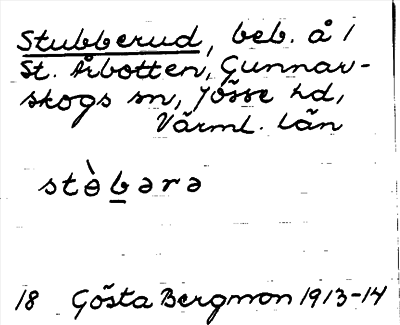 Stubberud, beb. å 1
St. Årbotten, Gunnar-
skogs sn, Jösse hd,
Värml. län
stɵ̀bərə
18 Gösta Bergman 1913-14